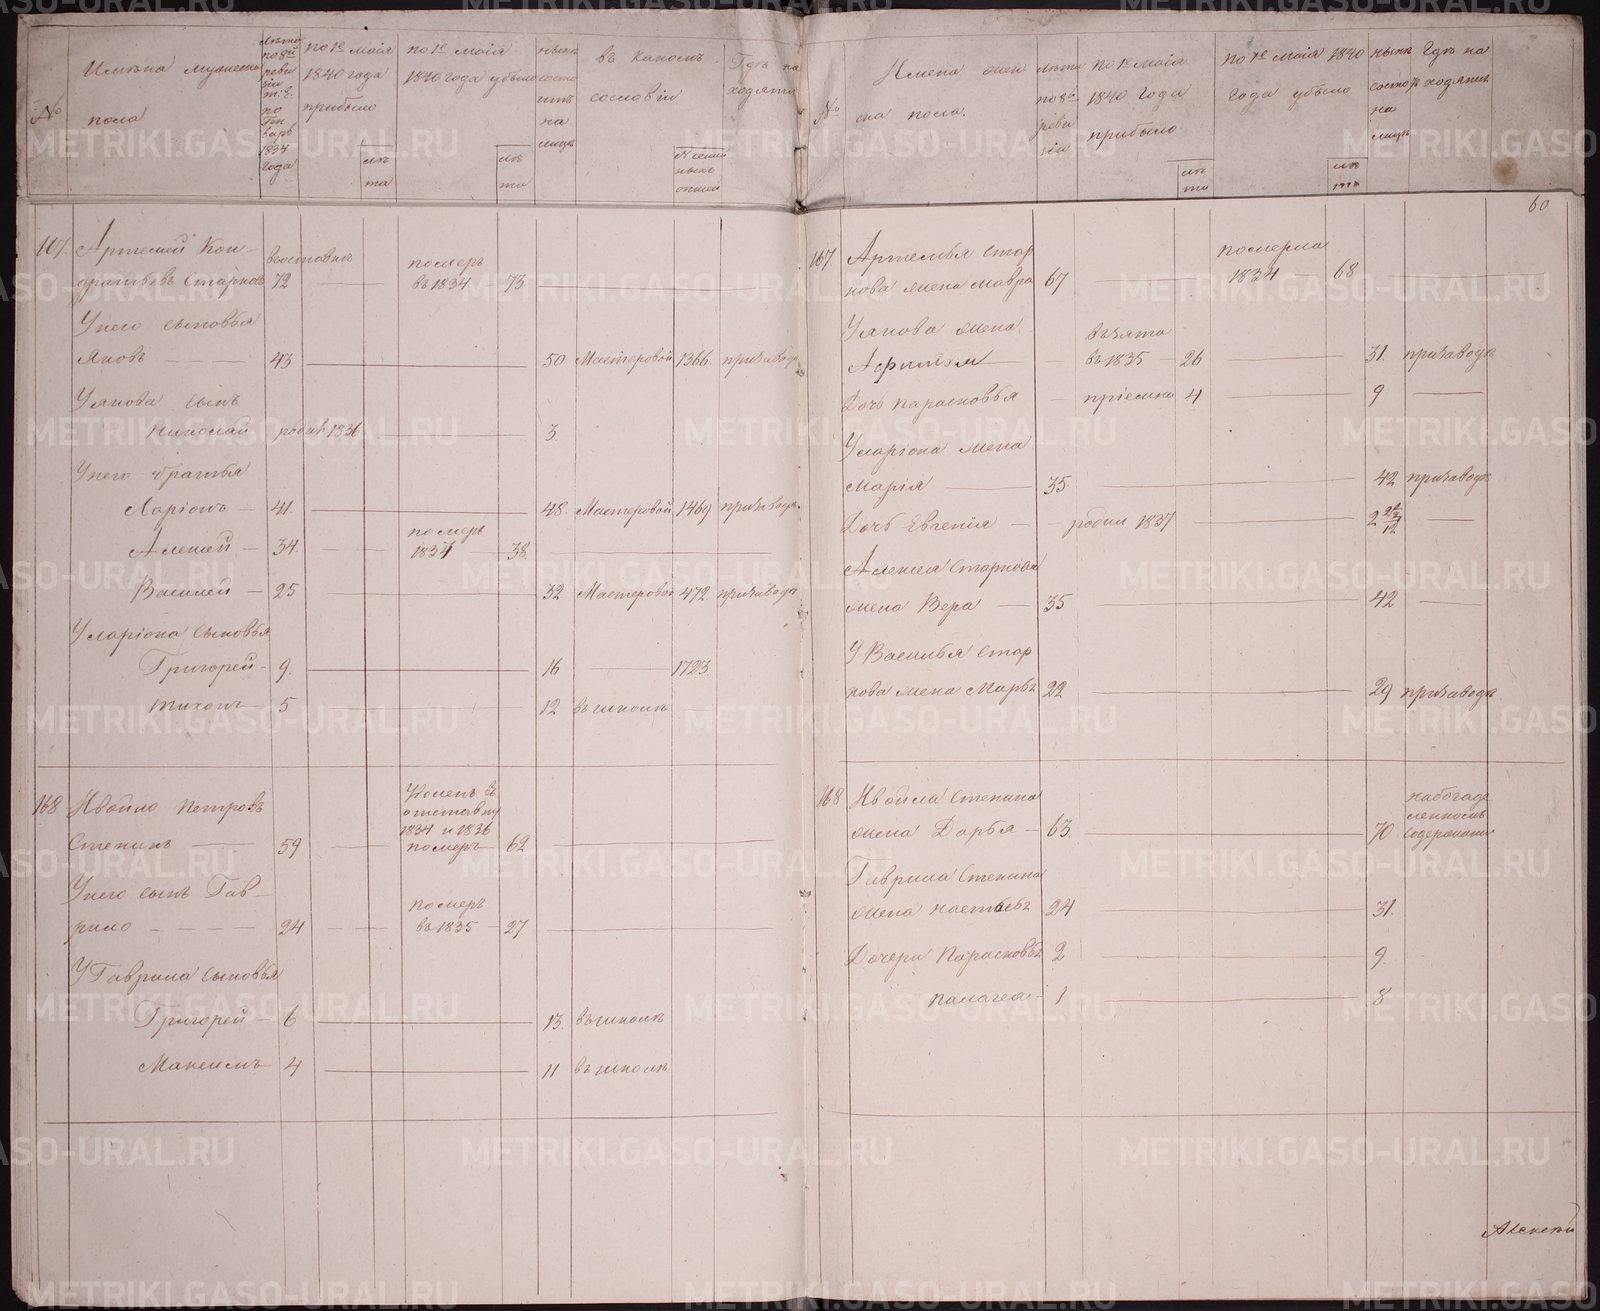 №
Имѣна мужеска
пола
лѣта
по 8й
реви
зіи
т. е.
по
Ген
варь
1834
года
по 1е маія
1840 года
прибыло
лѣ
та
по 1е маія
1840 года убыло
лѣ
та
нынѣ
состо
итъ
на
лицѣ
въ какомъ
сословіи
Гдѣ на
ходятся
107.
Артемей Кон-
дратьевъ Старковъ
въотставкѣ
72
померъ
въ 1834
73
Унего сыновья
Яковъ
43
50
Мастеровой
1366.
призаводѣ
Уякова сынъ
Николай
родив 1836
3
Унего братья
Ларіонъ
41
48.
Мастеровой
1469
призаводѣ
Алексей
34.
померъ
1837
38.
Василей
25
32
Мастеровой
472.
призаводѣ
Уларіона сыновья
Григорей
9.
16
1723.
тихонъ
5
12
въ школѣ
168
Ивойло Петровъ
Степинъ
59
Уволенъ въ
отставку
1834 и 1836
померъ
62
Унего сынъ Гав-
рило
24
померъ
въ 1835
27
УГаврила сыновья
Григорей
6
13
въ школѣ
Максимъ
4
11
въ школѣ
№
Имена жен
ска пола.
лѣта
по 8й
реви
зіи
по 1е маія
1840 года
прибыло
лѣ
та
по 1е маія 1840
года убыло
лѣ
та
нынѣ
состоя
на
лицѣ
Гдѣ на
ходятся
60
167
Артемья Стар
кова жена Мавра
67
померла
1834
68
Уякова жена
Афимья
взята
въ 1835
26
31.
призаводѣ
Дочь Парасковья
пріемна
4
9
Уларіона жена
Марія
35.
42
призаводѣ
Дочь Евгенія
родил 1837
2
Алексея Старкова
жена Вера
35
42
У Василья Стар
кова жена Марья
22
29
призаводѣ
168
Ивойла Степина
жена Дарья
63.
70
набогаде
ленномъ
содержании
Гаврила Степина
жена настасья
24
31.
Дочери Парасковья
2
9.
палагея
1
8
METRIKI.GASO-URAL.RU